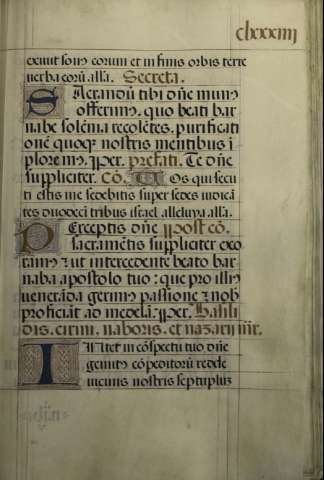 clxxxiiij
exiuit son⁹ eorum et in fines orbis terre
verba eorū. alla. Secreta.
Sacrandū tibi dñe munus
offerim⁹. quo beati bar
nabe solēnia recolētes. purificati
onē quoqȝ nostris mentibus ī
plorem⁹. Per. Prefati. Te dñe
suppliciter. Cō. Vos qui secu
ti estis me sedebitis super sedes iudicā
tes duodecī tribus israel. alleluya. alla.
Perceptis dñe Post cō.
sacramētis suppliciter exo
ram⁹ ut intercedente beato bar
naba apostolo tuo: que pro illius
veneranda gerim⁹ passione nob
proficiāt ad medelā. Per. Basili
dis. cirini. naboris. et nazarij mr.
Intret in cōspectu tuo dñe
gemit⁹ cōpeditorū redde
vicinis nostris septuplū